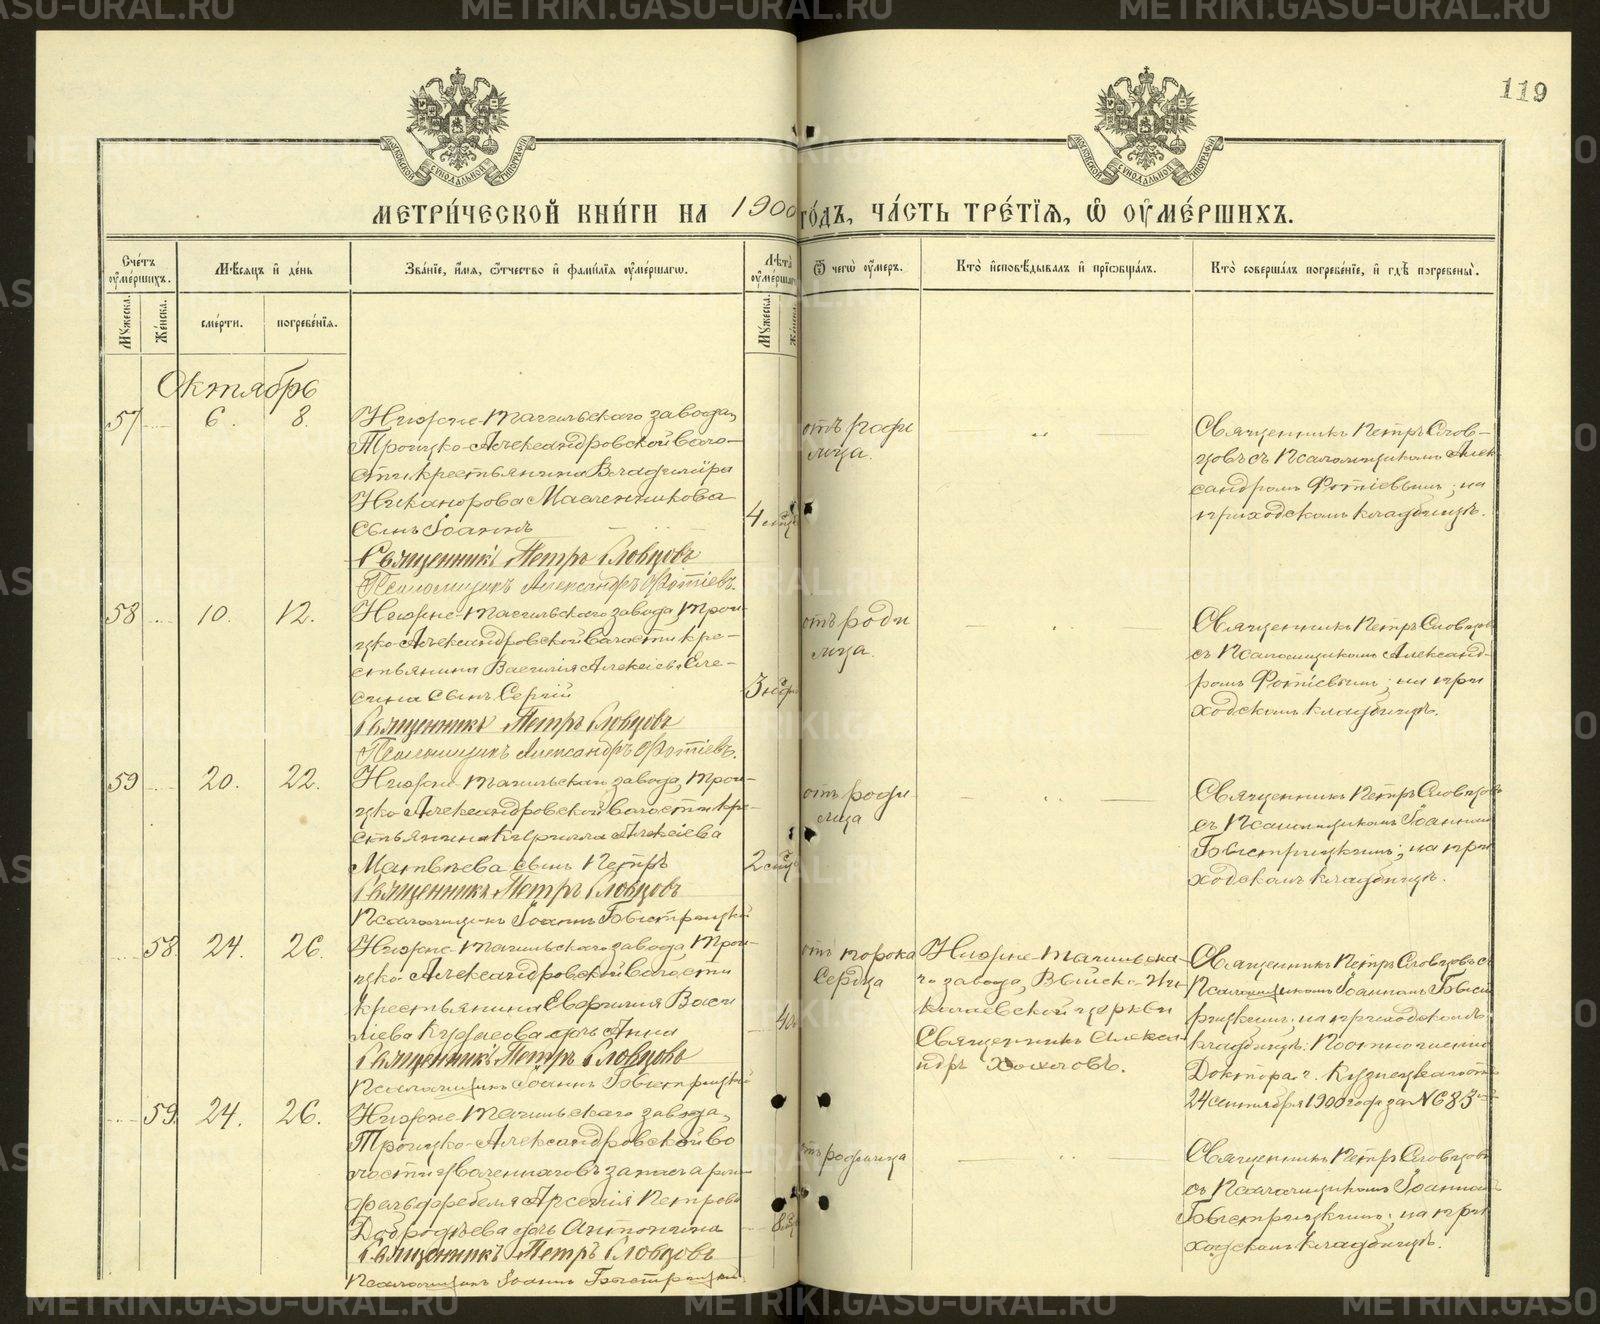 119
МОСКОВСКОЙ СѴНОДАЛЬНОЙ ТИПОГРАФІИ
МОСКОВСКОЙ СѴНОДАЛЬНОЙ ТИПОГРАФІИ
МЕТРИ́ЧЕСКОЙ КНИ́ГИ НА 1900 ГО́ДЪ, ЧА́СТЬ ТРЕ́ТІѦ, Ѡ҆ ОУ҆МЕ́РШИХЪ.
Сче́тъ оу҆ме́ршихъ.
Мѣ́сяцъ и҆ де́нь
Зва́нїе, и҆́мѧ, ѻ҆́тчество и҆ фами́лїѧ оу҆ме́ршагѡ.
Лѣ́тъ оу҆ме́ршагѡ
Ѿ чегѡ̀ оу҆́меръ.
Кто̀ и҆сповѣ́дывалъ и҆ прїѡбща́лъ.
Кто̀ соверша́лъ погребе́нїе, и҆ гдѣ̀ погребены̀.
Му́жеска.
Же́нска.
сме́рти.
погребе́нїѧ.
Му́жеска.
Же́нска.
Октябрь
57
6.
8.
Нижне-Тагильскаго завода,
Троицко-Александровской воло-
сти крестьянина Владиміра
Никанорова Масленникова
сынъ Іоаннъ
Священникъ Петръ Словцовъ
Псаломщикъ Александръ Фотіевъ.
4
отъ роди
мца.
Священникъ Петръ Слов-
цовъ съ Псаломщикомъ Алек
сандромъ Фотіевымъ; на
приходскомъ кладбищѣ.
58
10.
12.
Нижне-Тагильскаго завода, Трои-
цко-Александровской волости кре-
стьянина Василія Алексіева Еле-
сина сынъ Сергій
Священникъ Петръ Словцовъ
Псаломщикъ Александръ Фотіевъ.
3
отъ роди
мца.
Священникъ Петръ Словцовъ
съ Псаломщикомъ Александ-
ромъ Фотіевымъ; на при
ходскомъ кладбищѣ.
59
20.
22.
Нижне-Тагильскаго завода, Трои-
цко-Александровской волости кре-
стьянина Кирилла Алексіева
Матвѣева сынъ Петръ
Священникъ Петръ Словцовъ
Псаломщикъ Іоаннъ Быстрицкій
2
отъ роди
мца
Священникъ Петръ Словцовъ
съ Псаломщикомъ Іоанномъ
Быстрицкимъ; на при
ходскомъ кладбищѣ.
58.
24.
26.
Нижне-Тагильскаго завода Трои-
цко-Александровской волости
крестьянина Васи
ліева дочь Анна
Священникъ Петръ Словцовъ
Псаломщикъ Іоаннъ Быстрицкій
отъ порока
сердца
Нижне-Тагильска-
го завода, Выйско-Ни
колаевской церкви
Священникъ Алекса
ндръ Хохловъ.
Священникъ Петръ Словцовъ съ
Псаломщикомъ Іоанномъ Быст
рицкимъ; на приходскомъ
кладбищѣ. По отношенію
Доктора г. Кузнецкаго отъ
24 сентября 1900 года за №683
59.
24.
26.
Нижне-Тагильскаго завода,
Троицко-Александровской во
лости уволеннаго въ запасъ арміи
фельдфебеля Арсенія Петрова
Добродѣева дочь Антонина
Священникъ Петръ Словцовъ
Псаломщикъ Іоаннъ Быстрицкій
отъ родимца
Священникъ Петръ Словцовъ
съ Псаломщикомъ Іоанномъ
Быстрицкимъ; на при
ходскомъ кладбищѣ.
METRIKI.GASU-URAL.RU